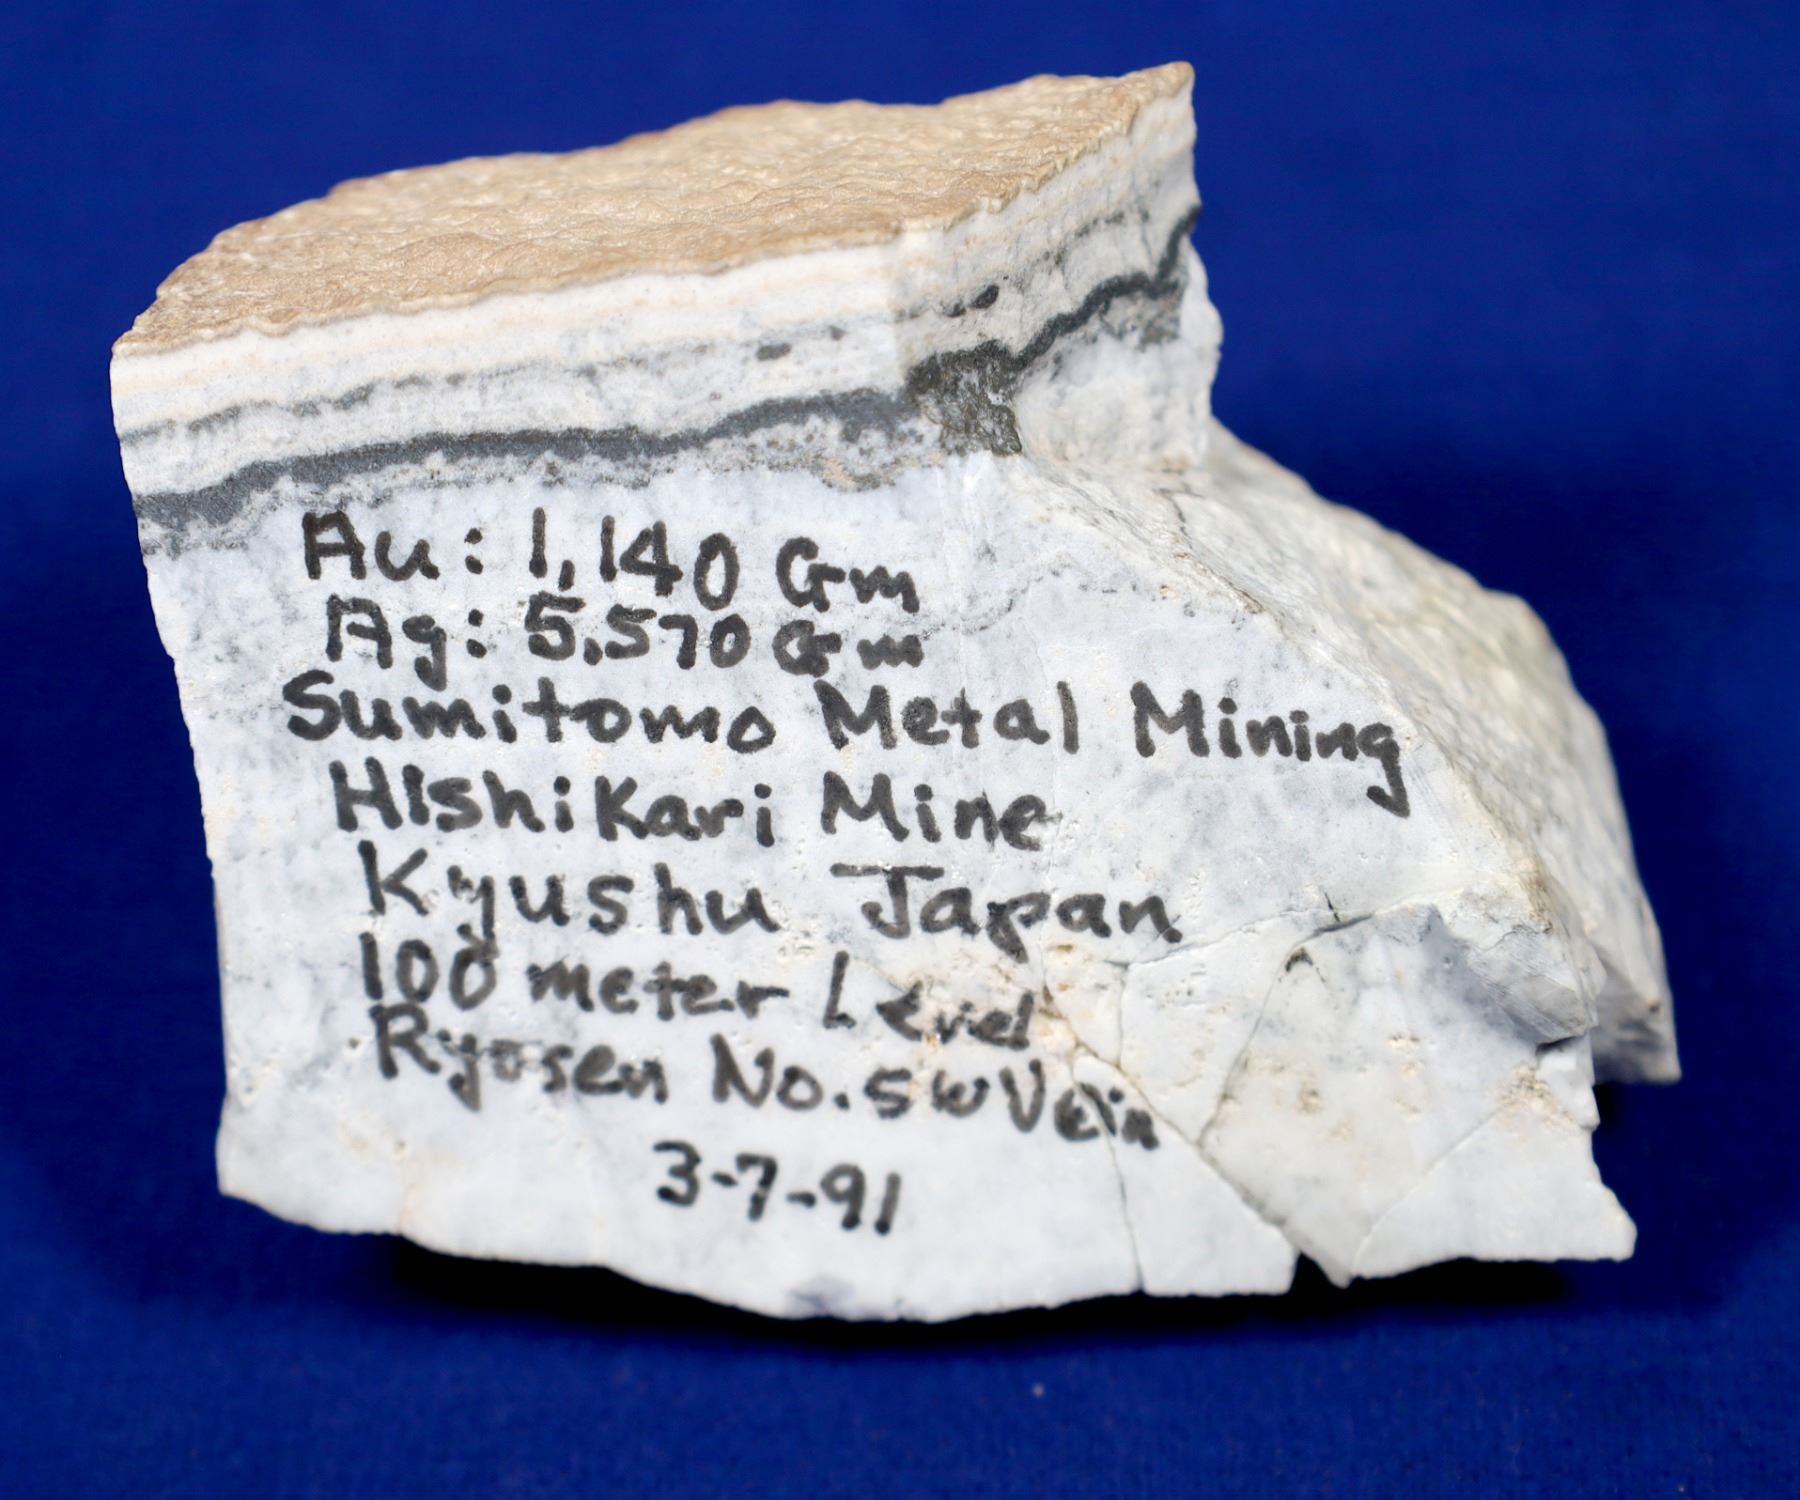 Au: 1,140 Gm
Ag: 5,570 Gm
Sumitomo Metal Mining
Hishikari Mine
Kyushu Japan
100 meter Level
Ryosen No. 5W Vein
3-7-91